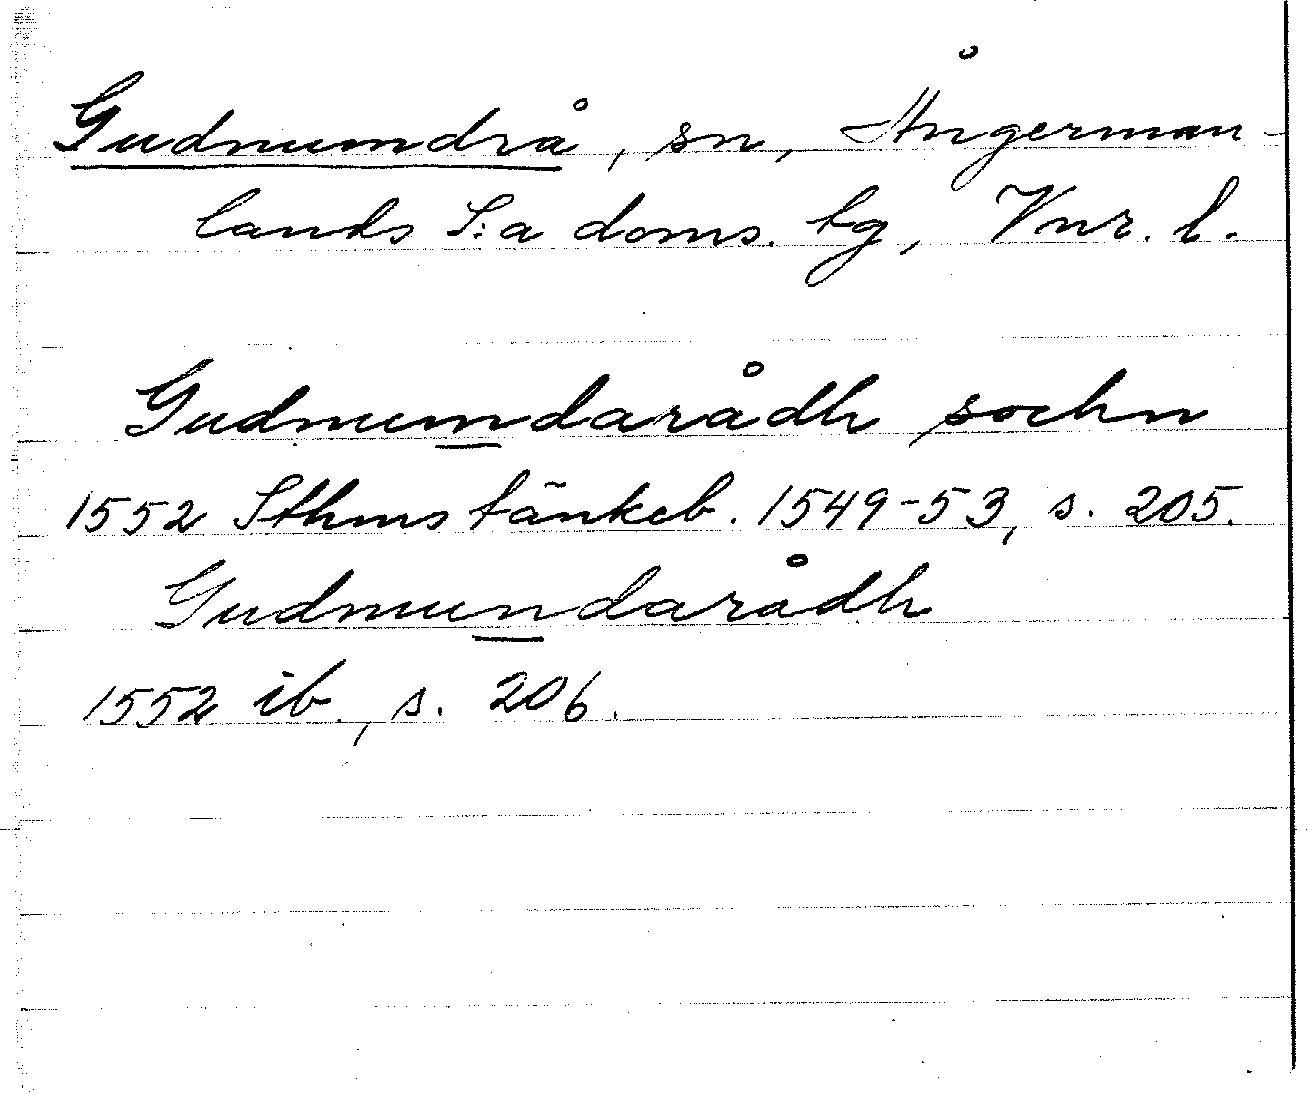 Gudmundrå, sn, Ångerman-
lands S:a doms. tg, Vnr. l.
Gudmumdarådh sochn
1552 Sthms tänkeb. 1549-53, s. 205.
Gudmundarådh
1552 ib., s. 206.